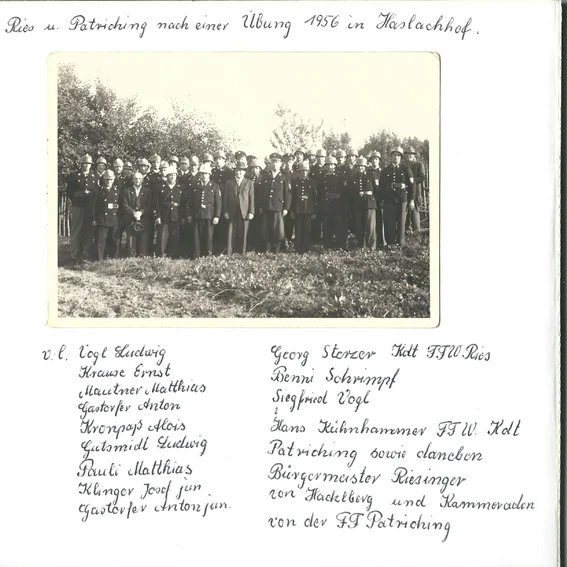 Ries u. Patriching nach einer Übung 1956 in Haslachhof.
v. l. Vogl Ludwig
Krause Ernst
Mautner Matthias
Gastorfer Anton
Kronpaß Alois
Gutsmidt Ludwig
Pauli Matthias
Klinger Josef jun
Gastorfer Anton jun.
Georg Storzer Kdt FFW. Ries
Benni Schrimpf
Siegfried Vogl
Hans Kühnhammer FFW. Kdt
Patriching sowie daneben
Bürgermeister Riesinger
von Hackelberg und Kammeraden
von der FF Patriching